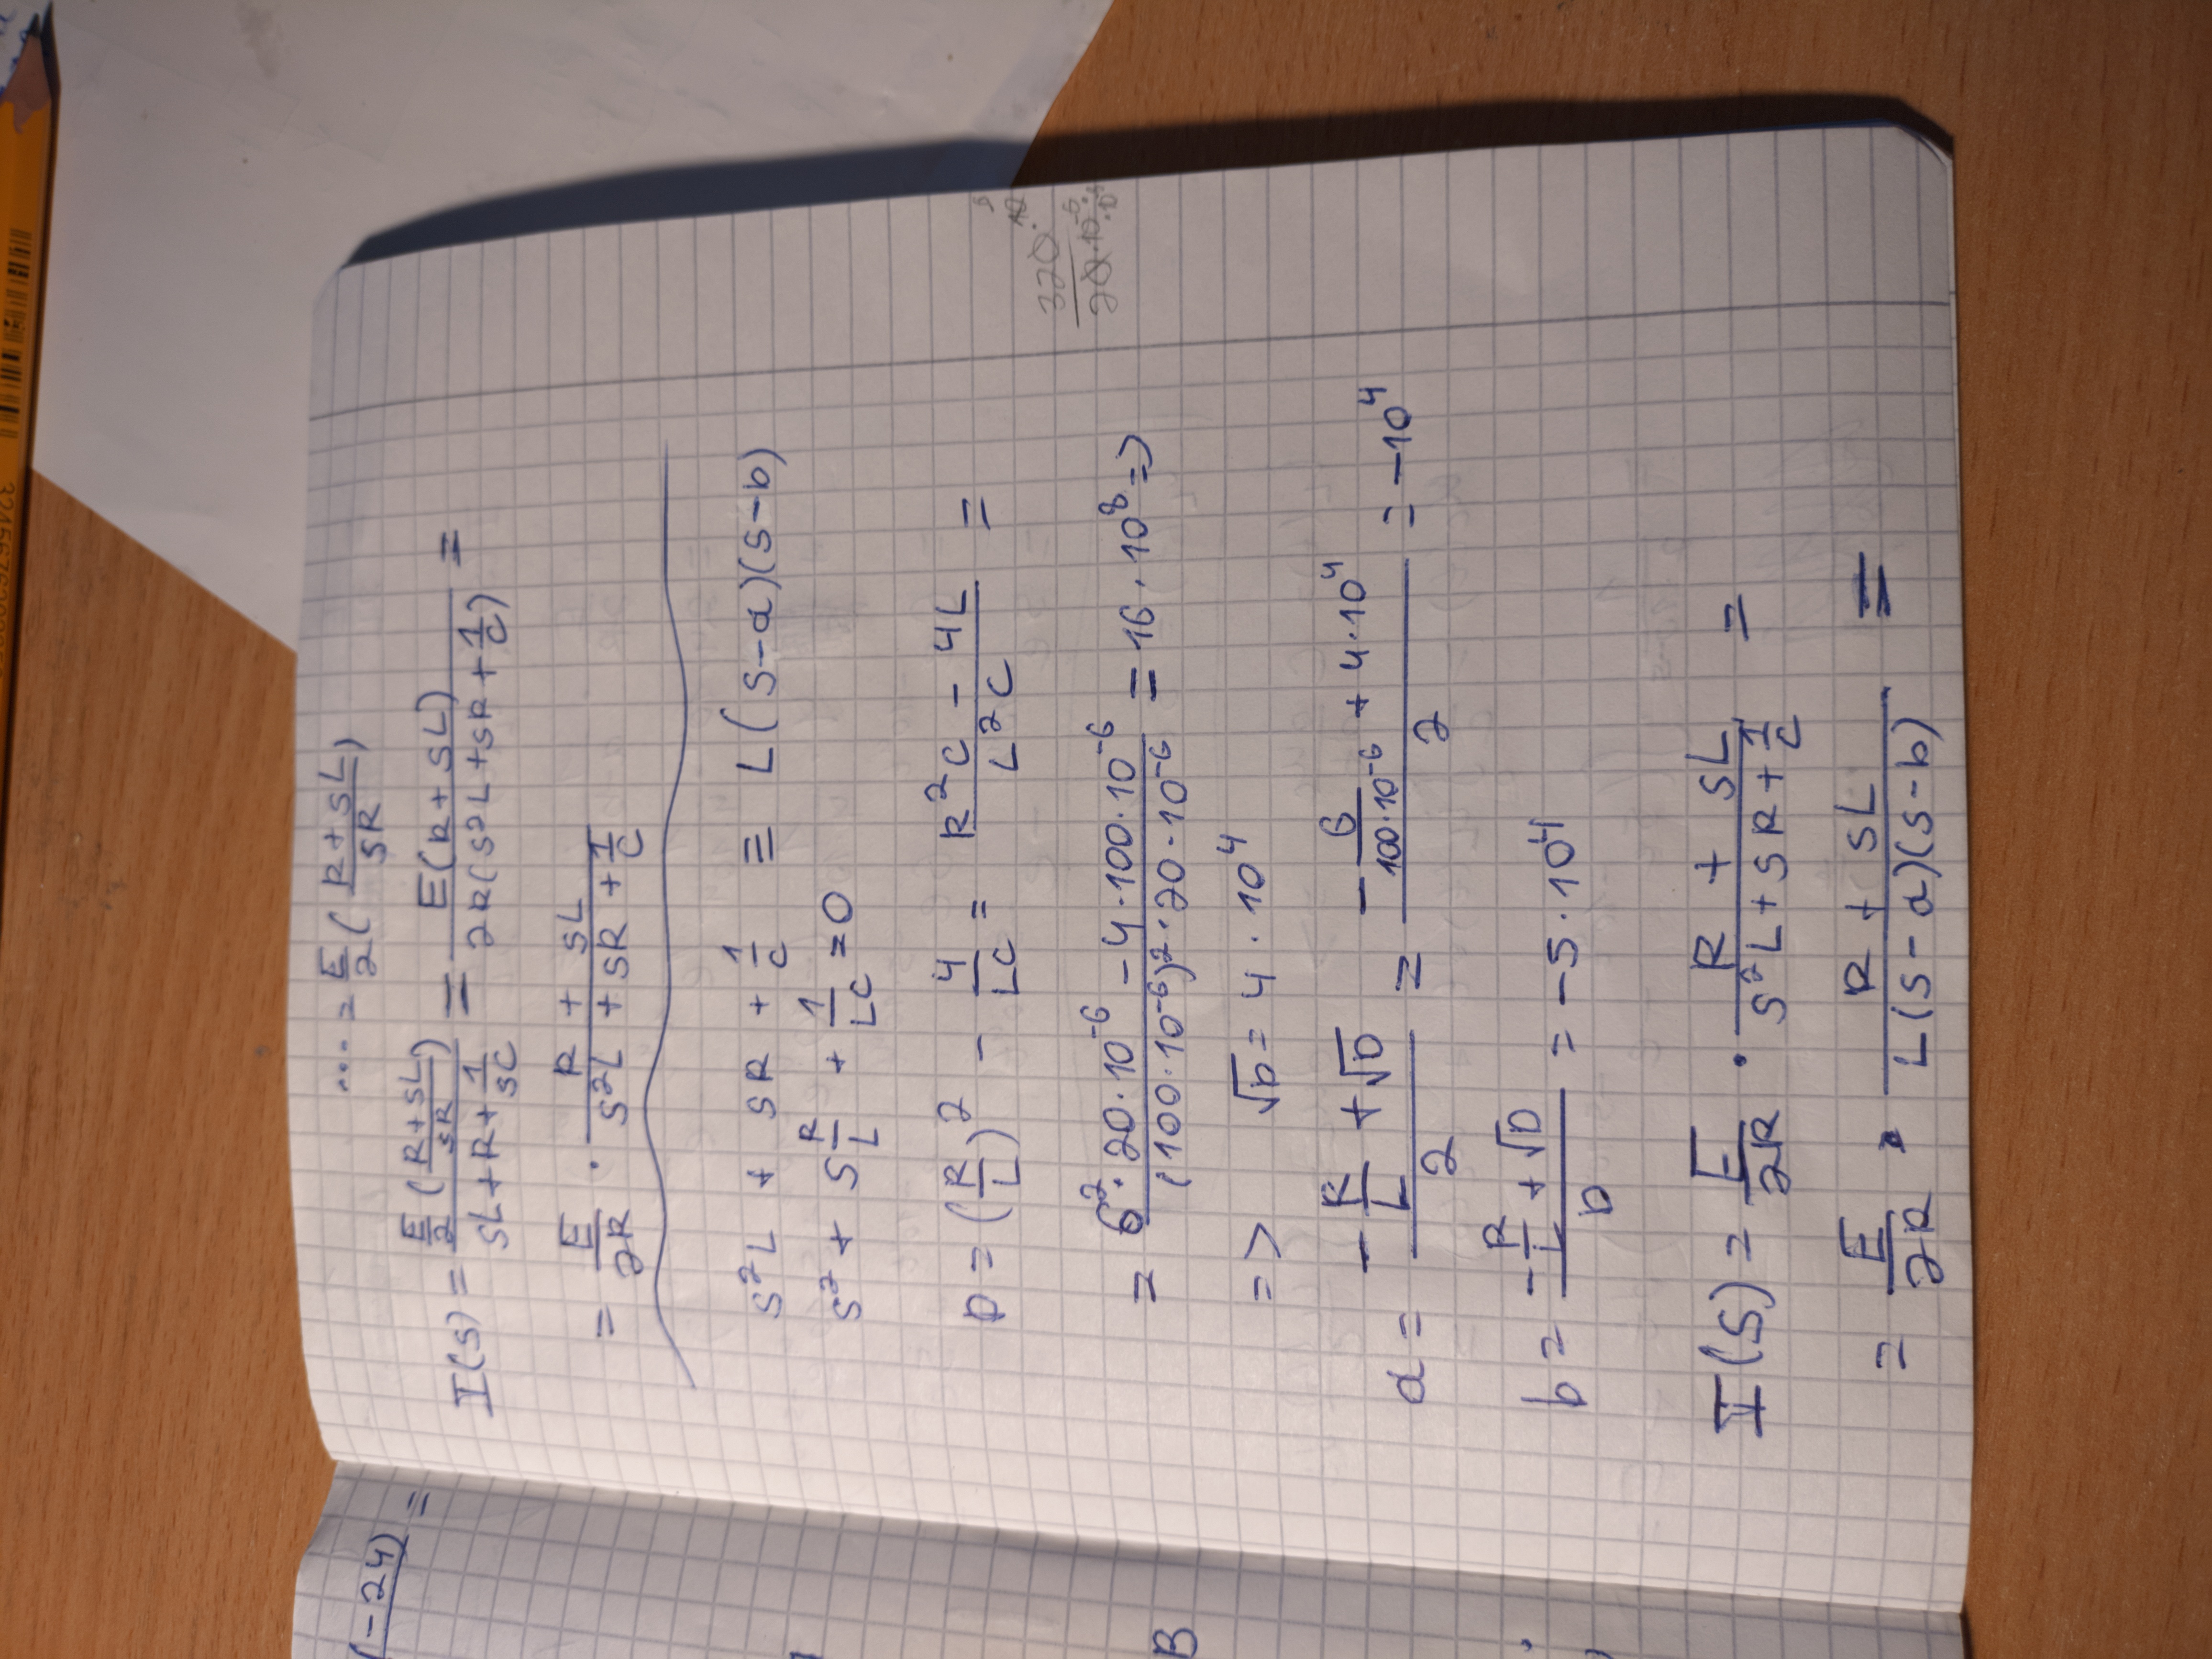 (-24) =
... = E/2 ( (R + sL)/(sR) )
I(s) = ( E/2 ( (R + sL)/(sR) ) ) / ( sL + R + 1/(sC) ) = E(R + sL) / ( 2R(s²L + sR + 1/C) ) =
= E/(2R) · (R + sL) / (s²L + sR + 1/C)
s²L + sR + 1/C ≡ L(s-a)(s-b)
s² + s R/L + 1/(LC) = 0
D = (R/L)² - 4/(LC) = (R²C - 4L)/(L²C) =
= (6² · 20 · 10⁻⁶ - 4 · 100 · 10⁻⁶) / ((100 · 10⁻⁶)² · 20 · 10⁻⁶) = 16 · 10⁸ =>
=> √D = 4 · 10⁴
a = (-R/L + √D)/2 = (-6/(100·10⁻⁶) + 4·10⁴)/2 = -10⁴
b = (-R/L + √D)/D = -5 · 10⁴
I(s) = E/(2R) · (R + sL)/(s²L + sR + 1/C) =
= E/(2R) · (R + sL)/(L(s-a)(s-b)) =
B